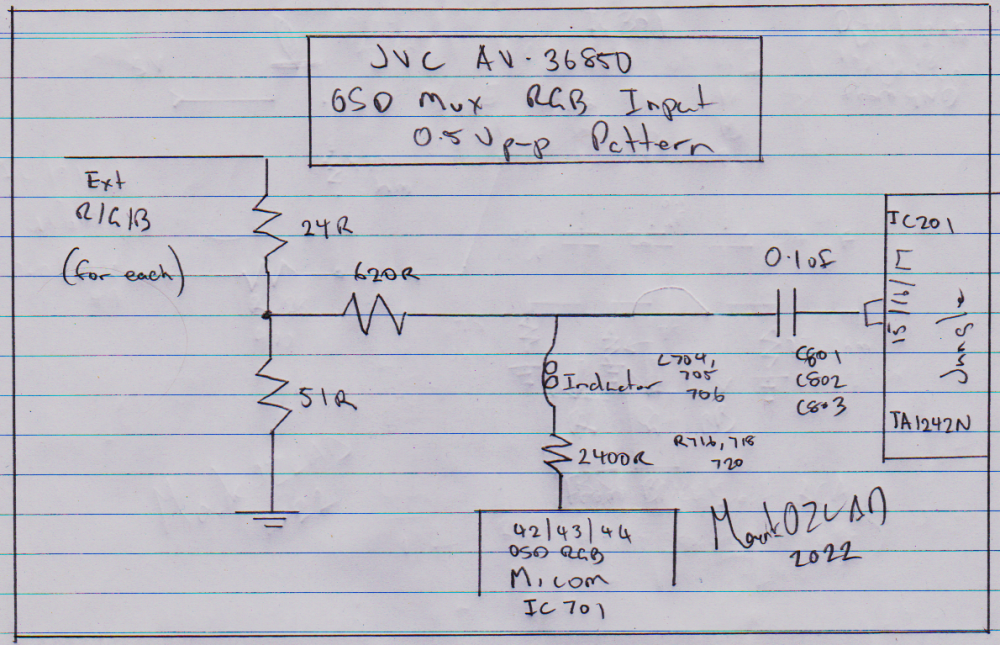 JVC AV-36850
OSD Mux RGB Input
0.5Vp-p Pattern
Ext
R/G/B
(for each)
24R
620R
51R
0.1uF
IC201
15/16/17
Jungle
TA1242N
Inductor
L704,
705
706
C801
C802
C803
2400R
R716, 718
720
42/43/44
OSD RGB
Micom
IC701
2022